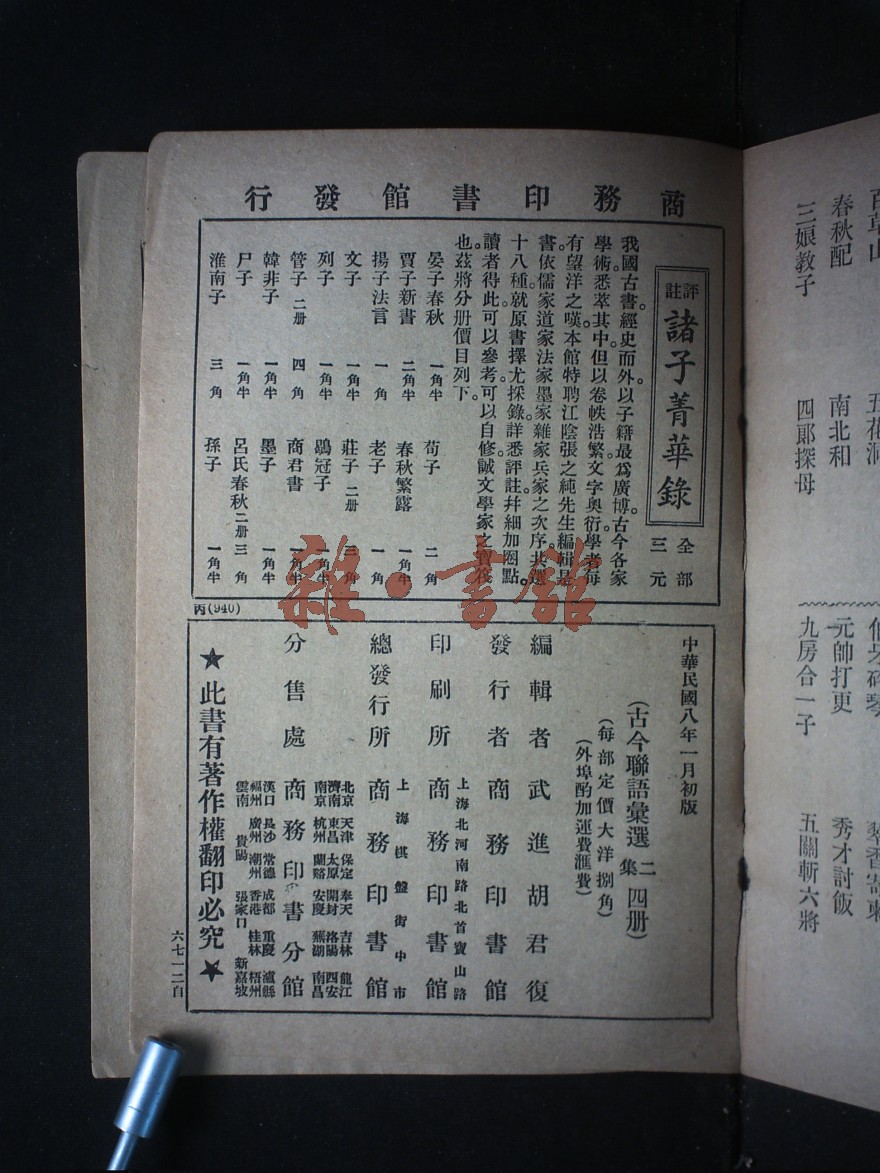 商務印書館發行
評註
諸子菁華錄
全部
三元
我國古書經史而外。以子籍最爲廣博。古今各家
學術悉萃其中。但以卷帙浩繁。文字奧衍。學者每
有望洋之嘆。本館特聘江陰張之純先生編輯是
書。依儒家道家法家墨家雜家兵家之次序。共選
十八種。就原書擇尤採錄。詳悉評註。幷細加圈點。
讀者得此。可以參考。可以自修。誠文學家之寶筏
也。茲將分册價目列下。
晏子春秋 一角半 荀子 二角
賈子新書 二角半 春秋繁露 一角半
揚子法言 一角 老子 一角
文子 一角半 莊子 二册 三角
列子 一角半 鶡冠子 一角半
管子 二册 四角 商君書 一角半
韓非子 一角半 墨子 一角半
尸子 一角半 呂氏春秋 二册 三角
淮南子 三角 孫子 一角半
丙(940)
中華民國八年一月初版
(古今聯語彙選二集四册)
(每部定價大洋捌角)
(外埠酌加運費滙費)
編輯者 武進胡君復
發行者 商務印書館
上海北河南路北首寶山路
印刷所 商務印書館
上海棋盤街中市
總發行所 商務印書館
北京 天津 保定 奉天 吉林 龍江
濟南 東昌 太原 開封 洛陽 西安
南京 杭州 蘭谿 安慶 蕪湖 南昌
分售處 商務印書分館
漢口 長沙 常德 成都 重慶 瀘縣
福州 廣州 潮州 香港 桂林 梧州
雲南 貴陽 張家口 新嘉坡
★此書有著作權翻印必究★
六七一二自
春秋配 南北和 元帥打更 秀才討飯
三娘教子 四郞探母 九房合一子 五關斬六將
雜·書館